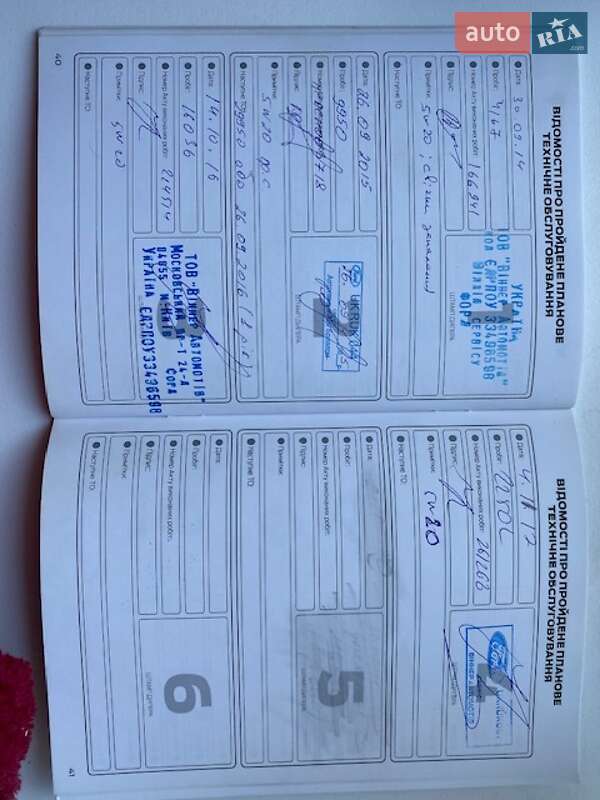 auto RIA.com
ВІДОМОСТІ ПРО ПРОЙДЕНЕ ПЛАНОВЕ
ТЕХНІЧНЕ ОБСЛУГОВУВАННЯ
Дата: 30.09.14
Пробіг: 4167
Номер Акту виконаних робіт: 166941
Підпис:
Примітки: 5w20; свічки запалення
Наступне ТО:
УКРАЇНА
ТОВ "ВІННЕР АВТОМОТІВ"
КОД ЄДРПОУ 33496598
ВІДДІЛ СЕРВІСУ
ФОРД
ШТАМП ДИЛЕРА
Дата: 26.09.2015
Пробіг: 9950
Номер Акту виконаних робіт:
Підпис:
Примітки: 5w20
Наступне ТО: або 26.09.2016
ШТАМП ДИЛЕРА
Дата: 14.10.16
Пробіг: 16036
Номер Акту виконаних робіт:
Підпис:
Примітки: 5w20
Наступне ТО:
ТОВ "ВІННЕР АВТОМОТІВ"
МОСКОВСЬКИЙ ПР-Т 24-А
04655 М.КИЇВ
УКРАЇНА ЄДРПОУ 33496598
40
ВІДОМОСТІ ПРО ПРОЙДЕНЕ ПЛАНОВЕ
ТЕХНІЧНЕ ОБСЛУГОВУВАННЯ
Дата:
Пробіг:
Номер Акту виконаних робіт: 261268
Підпис:
Примітки: 5w20
Наступне ТО:
Ford
ВІННЕР АВТОМОТІВ
ШТАМП ДИЛЕРА
Дата:
Пробіг:
Номер Акту виконаних робіт:
Підпис:
Примітки:
Наступне ТО:
5
ШТАМП ДИЛЕРА
Дата:
Пробіг:
Номер Акту виконаних робіт:
Підпис:
Примітки:
Наступне ТО:
6
ШТАМП ДИЛЕРА
41